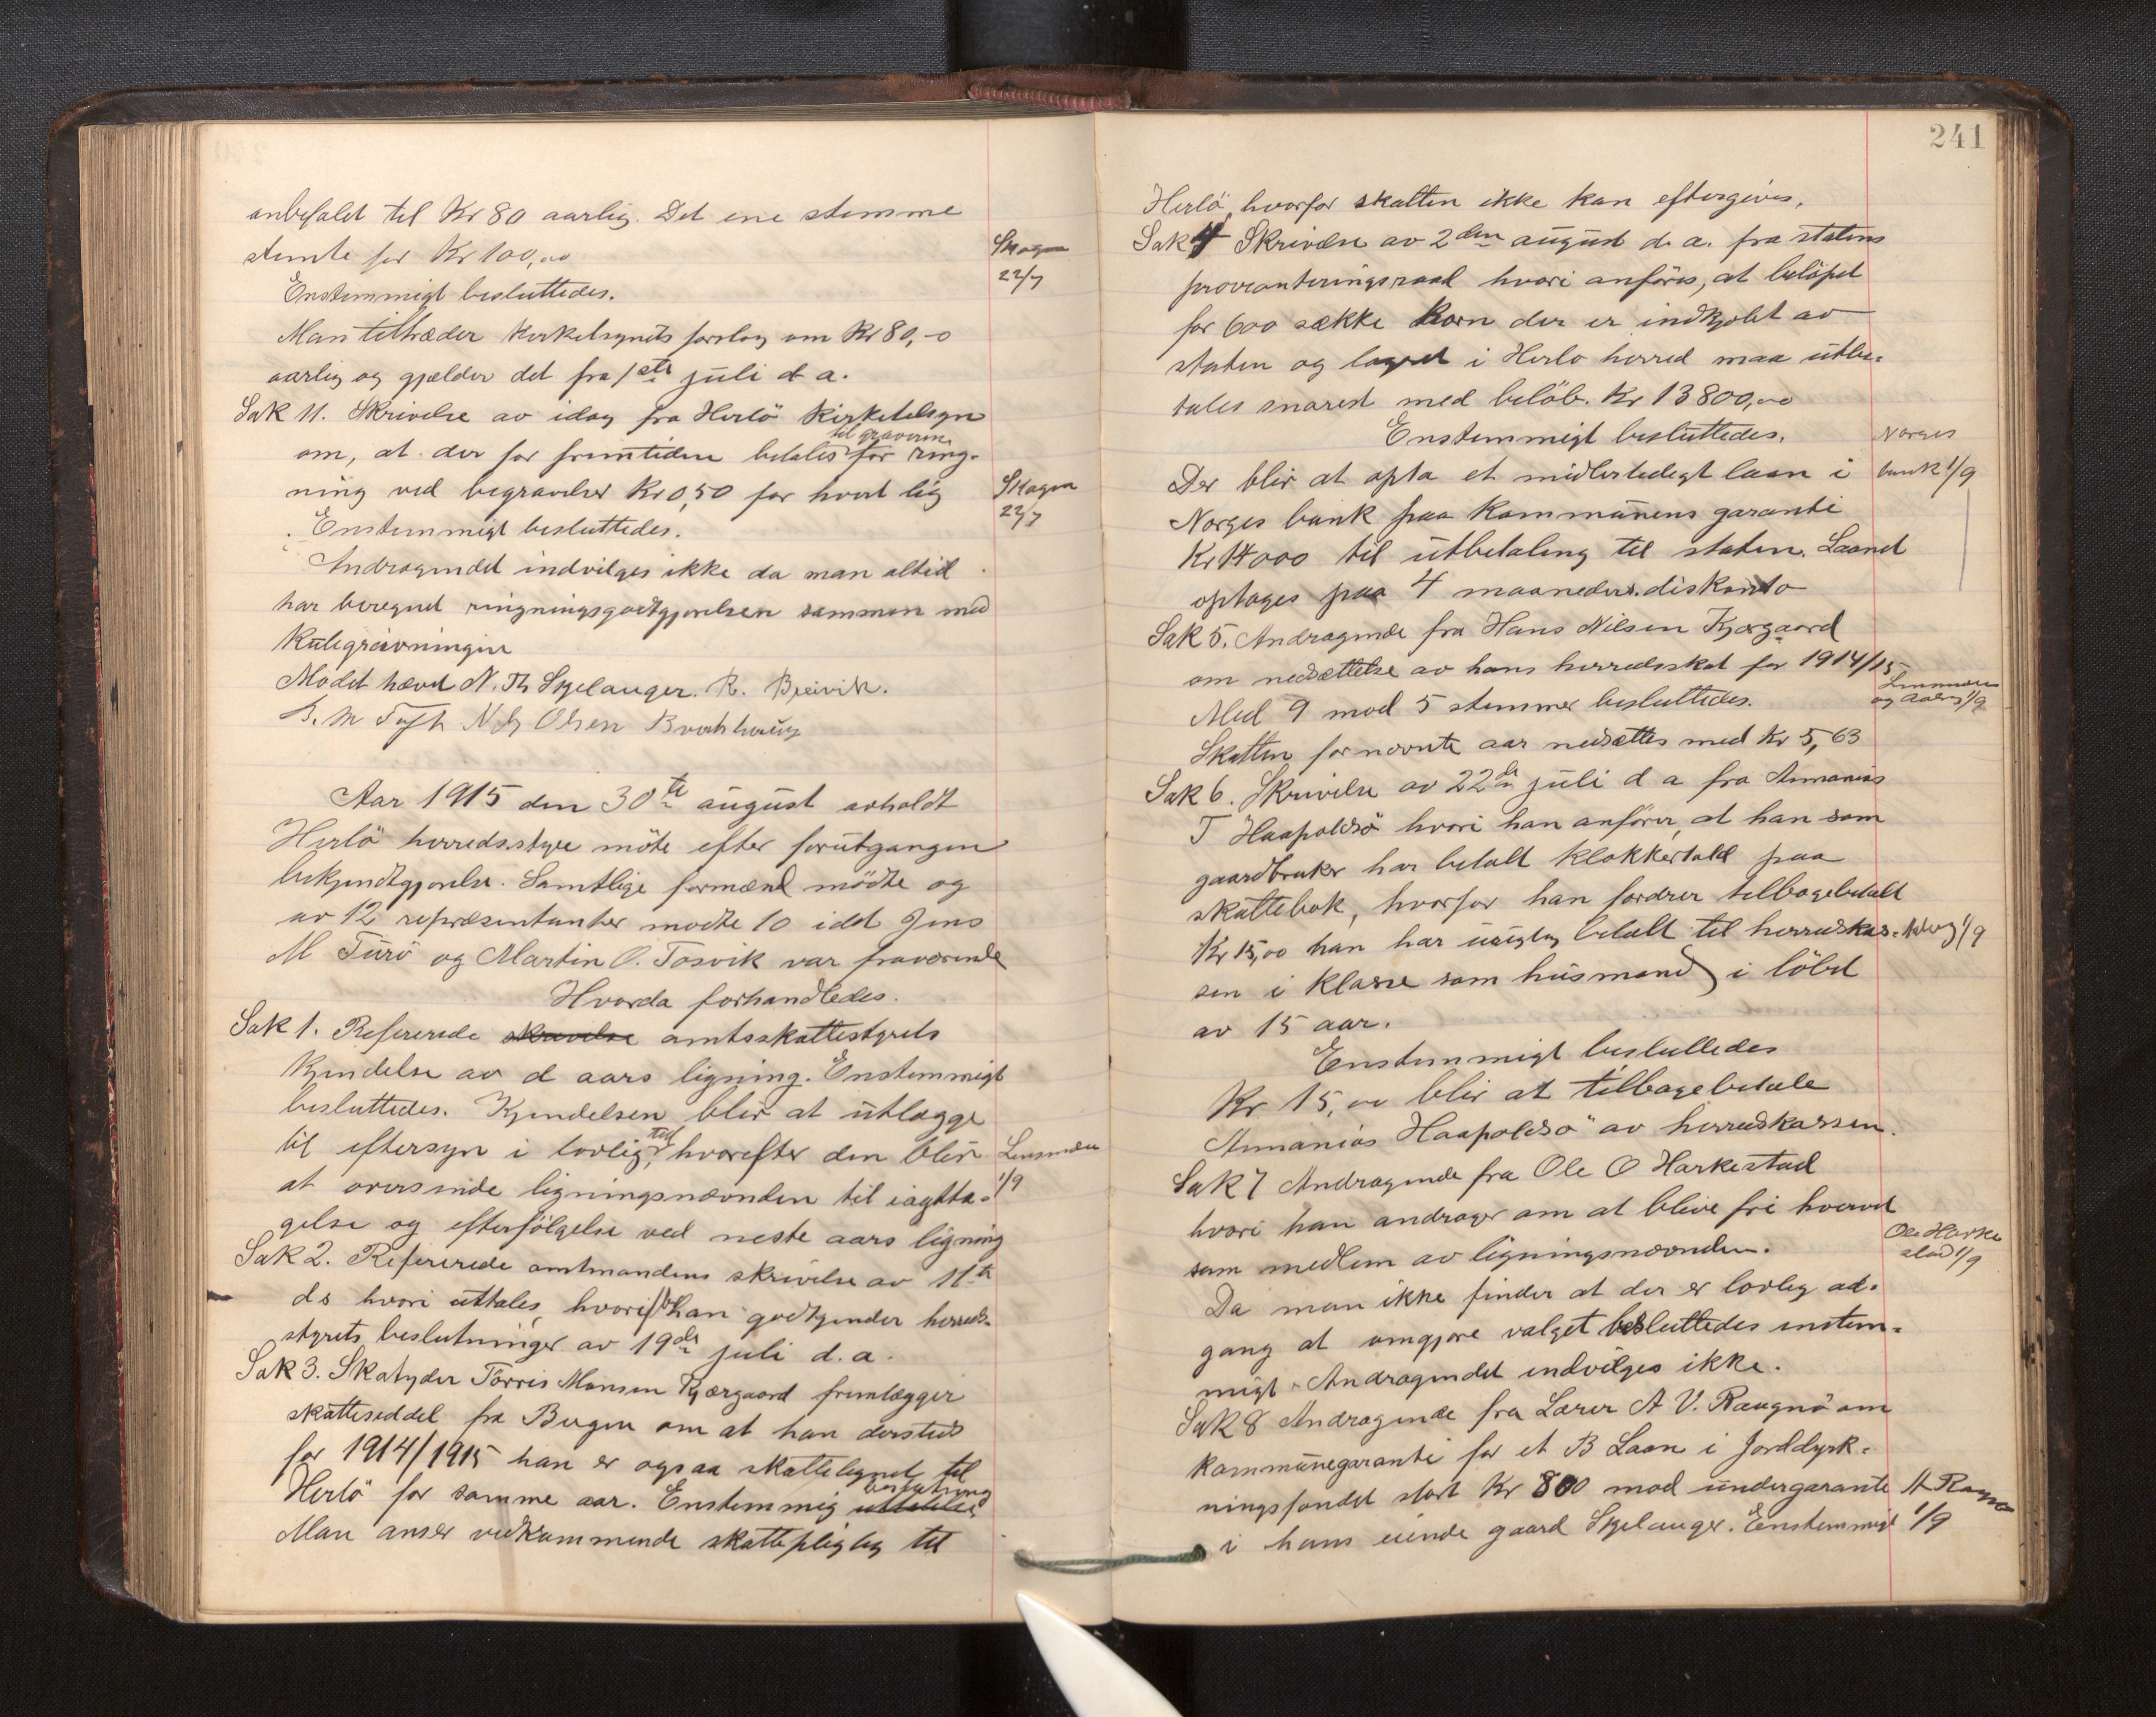 anbefalet til Kr 80 aarlig. Det ene stemme
stemte for Kr 100,00
Skogen
22/7
Enstemmigt besluttedes.
Man tiltræder kirketilsynets forslag om Kr 80,-0
aarlig og gjælder det fra 1ste juli d a.
Sak 11. Skrivelse av idag fra Herlö kirketilsyn
om, at der for fremtiden betales til graveren for ring-
ning ved begravelser Kr 0,50 for hvert lig
Skogen
22/7
Enstemmigt besluttedes.
Andragendet indvilges ikke da man altid
har beregnet ringningsgodtgjørelsen sammen med
Kulegravningen
Mødet hævet N. Th Skjelanger. R. Breivik.
N Olsen
Aar 1915 den 30te august avholdt
Herlö herredsstyre möte efter forutgangen
bekjendtgjørelse. Samtlige formænd mödte og
av 12 repræsentanter mødte 10 idet Jens
M Turö og Martin O. Tosvik var fraværende
Hvorda forhandledes.
Sak 1. Refererede skrivelse amtsskattestyrets
Kjendelse av d aars ligning. Enstemmigt
besluttedes. Kjendelsen blir at utlægge
til eftersyn i lovlig tid, hvorefter den blir
Lensmden
1/9
at oversende ligningsnævnden til iagtta-
gelse og efterfölgelse ved neste aars ligning
Sak 2. Refererede amtmandens skrivelse av 11te
ds hvori uttales, hvori han godkjender herreds-
styrets beslutninger av 19de juli d.a.
Sak 3. Skatyder Torris Monsen Kjærgaard fremlægger
skatteseddel fra Bergen om at han dersteds
for 1914/1915 han er ogsaa skattelignet til
Herlö for samme aar. Enstemmig uttalelse beslutning
Man anser vedkommende skattepligtig til
241
Herlö, hvorfor skatten ikke kan eftergives.
Sak 4 Skrivelse av 2den august d. a. fra statens
provianteringsraad hvori anføres, at belöpet
for 600 sække Korn der er indkjøbt av
staten og lagret i Herlo herred maa utbe-
tales snarest med beløb. Kr 13800,00
Enstemmigt besluttedes.
Norges
bank 1/9
Der blir at opta et midlertidigt laan i
Norges bank paa Kommunens garanti
Kr 14000 til utbetaling til staten. Laanet
optages paa 4 maaneders diskonto
Sak 5. Andragende fra Hans Nilsen Kjærgaard
om nedsættelse av hans herredsskat for 1914/15
Lensmden
og 1/9
Med 9 mod 5 stemmer besluttedes.
Skatten for nævnte aar nedsættes med Kr 5,63
Sak 6. Skrivelse av 22de juli d a fra Annanias
T Haapoldsö hvori han anfører, at han som
gaardbruker har betalt klokkertold paa
skattebok, hvorfor han fordrer tilbagebetalt
Kr 15,00 han har urigtig betalt til herredskas-
1/9
sen i klasse som husmand i löbet
av 15 aar.
Enstemmigt besluttedes
Kr 15,00 blir at tilbagebetale
Annanias Haapoldsö av herredskassen.
Sak 7 Andragende fra Ole O Harkestad
hvori han andrager om at blive fri hvervet
Ole Harke
stad 1/9
som medlem av ligningsnævnden.
Da man ikke finder at der er lovlig ad-
gang at omgjøre valget besluttedes enstem-
migt. Andragendet indvilges ikke.
Sak 8 Andragende fra Lærer A V. Raugnö om
kommunegaranti for et B Laan i Jorddyrk-
ningsfondet stort Kr 800 mod undergaranti
1/9
i hans eiende gaard Skjelanger. Enstemmigt